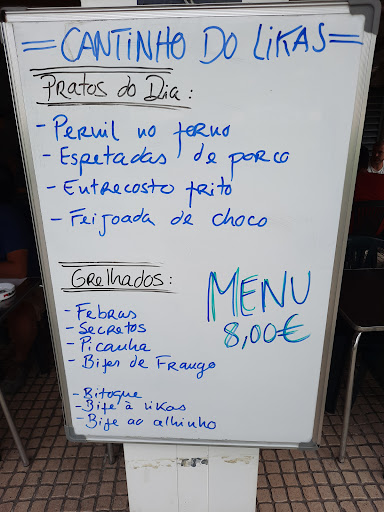 = CANTINHO DO LIKAS =
PRATOS DO DIA :
- Pernil no forno
- Espetadas de porco
- Entrecosto frito
- Feijoada de choco
GRELHADOS :
- Febras
- Secretos
- Picanha
- Bifes de Frango
MENU
8,00€
- Bitoque
- Bife à likas
- Bife ao alhinho